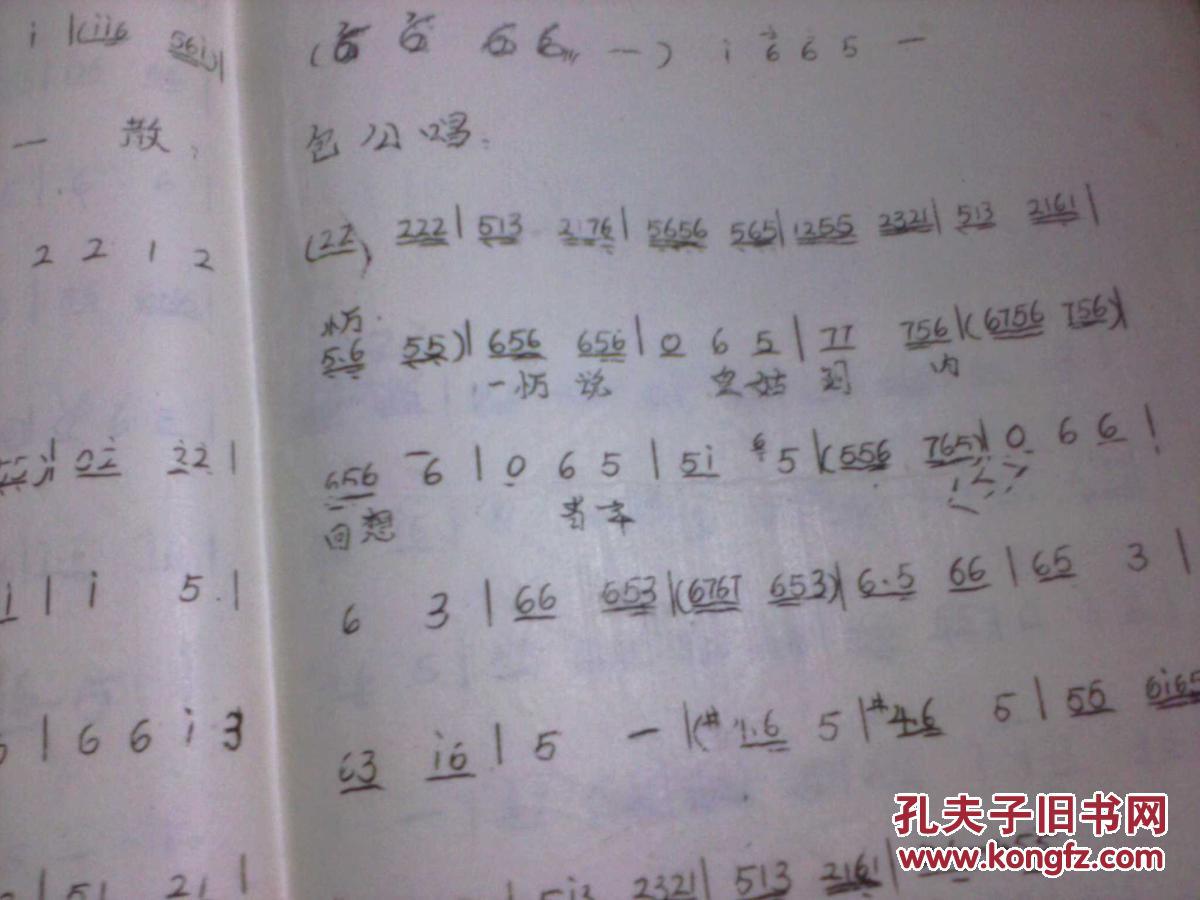 i |(ii6 56i)|
一 散
2 2 1 2
0i 22 |
i | i 5 |
| 6 6 i 3
| 51 21 |
(6 6 6 6 一) i 6 6 5 一
包公唱:
(22) 222 | 513 2176 | 5656 565 | 1255 2321 | 513 2161 |
5.6 55) | 656 656 | 0 6 5 | 77 756 |(6756 756)|
一 说 到 内
656 6 | 0 6 5 | 5i 5 |(556 765)| 0 6 6 |
回想
6 3 | 66 653 |(6767 653)| 6.5 66 | 65 3 |
63 i6 | 5 一 |(#4.6 5 | #4.6 5 | 55 6i65
2321 | 513 2161 |
孔夫子旧书网
www.kongfz.com